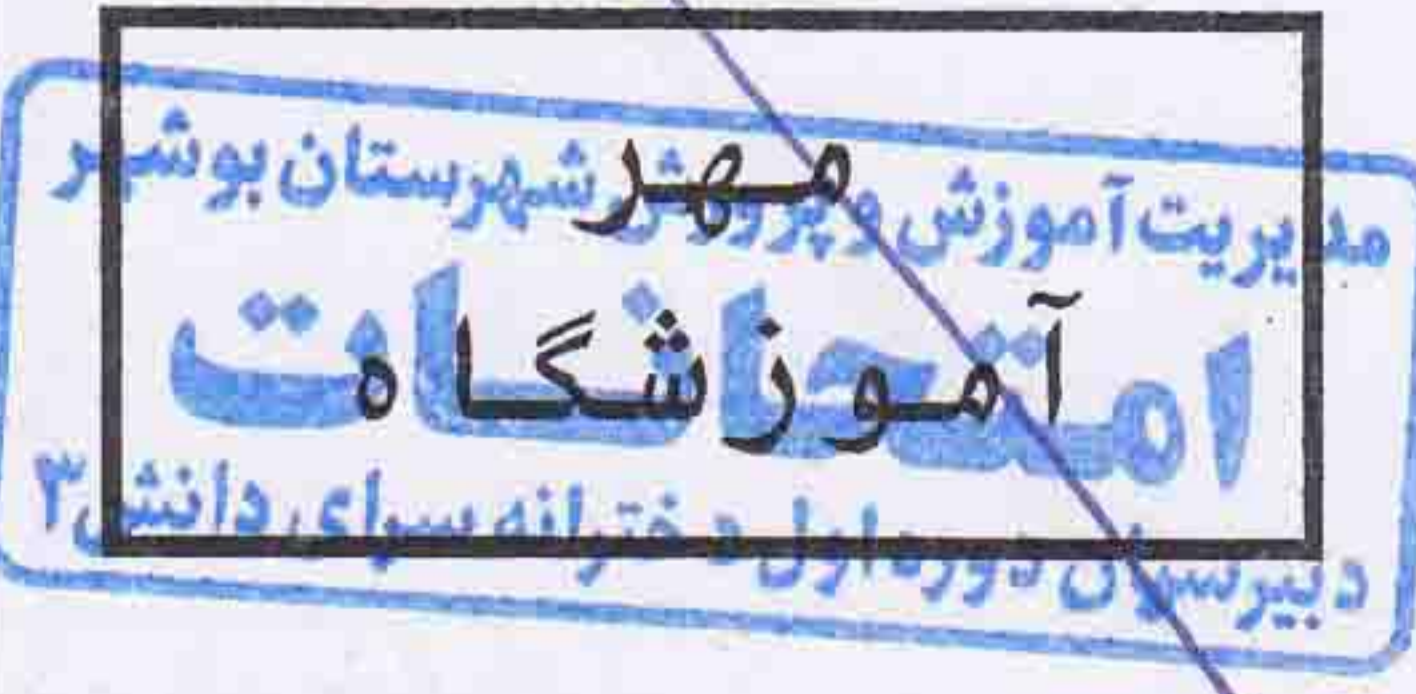 مهر
آموزشگاه
مدیریت آموزش و پرورش شهرستان بوشهر
امتحانات
دبیرستان دوره اول دخترانه سرای دانش ۳